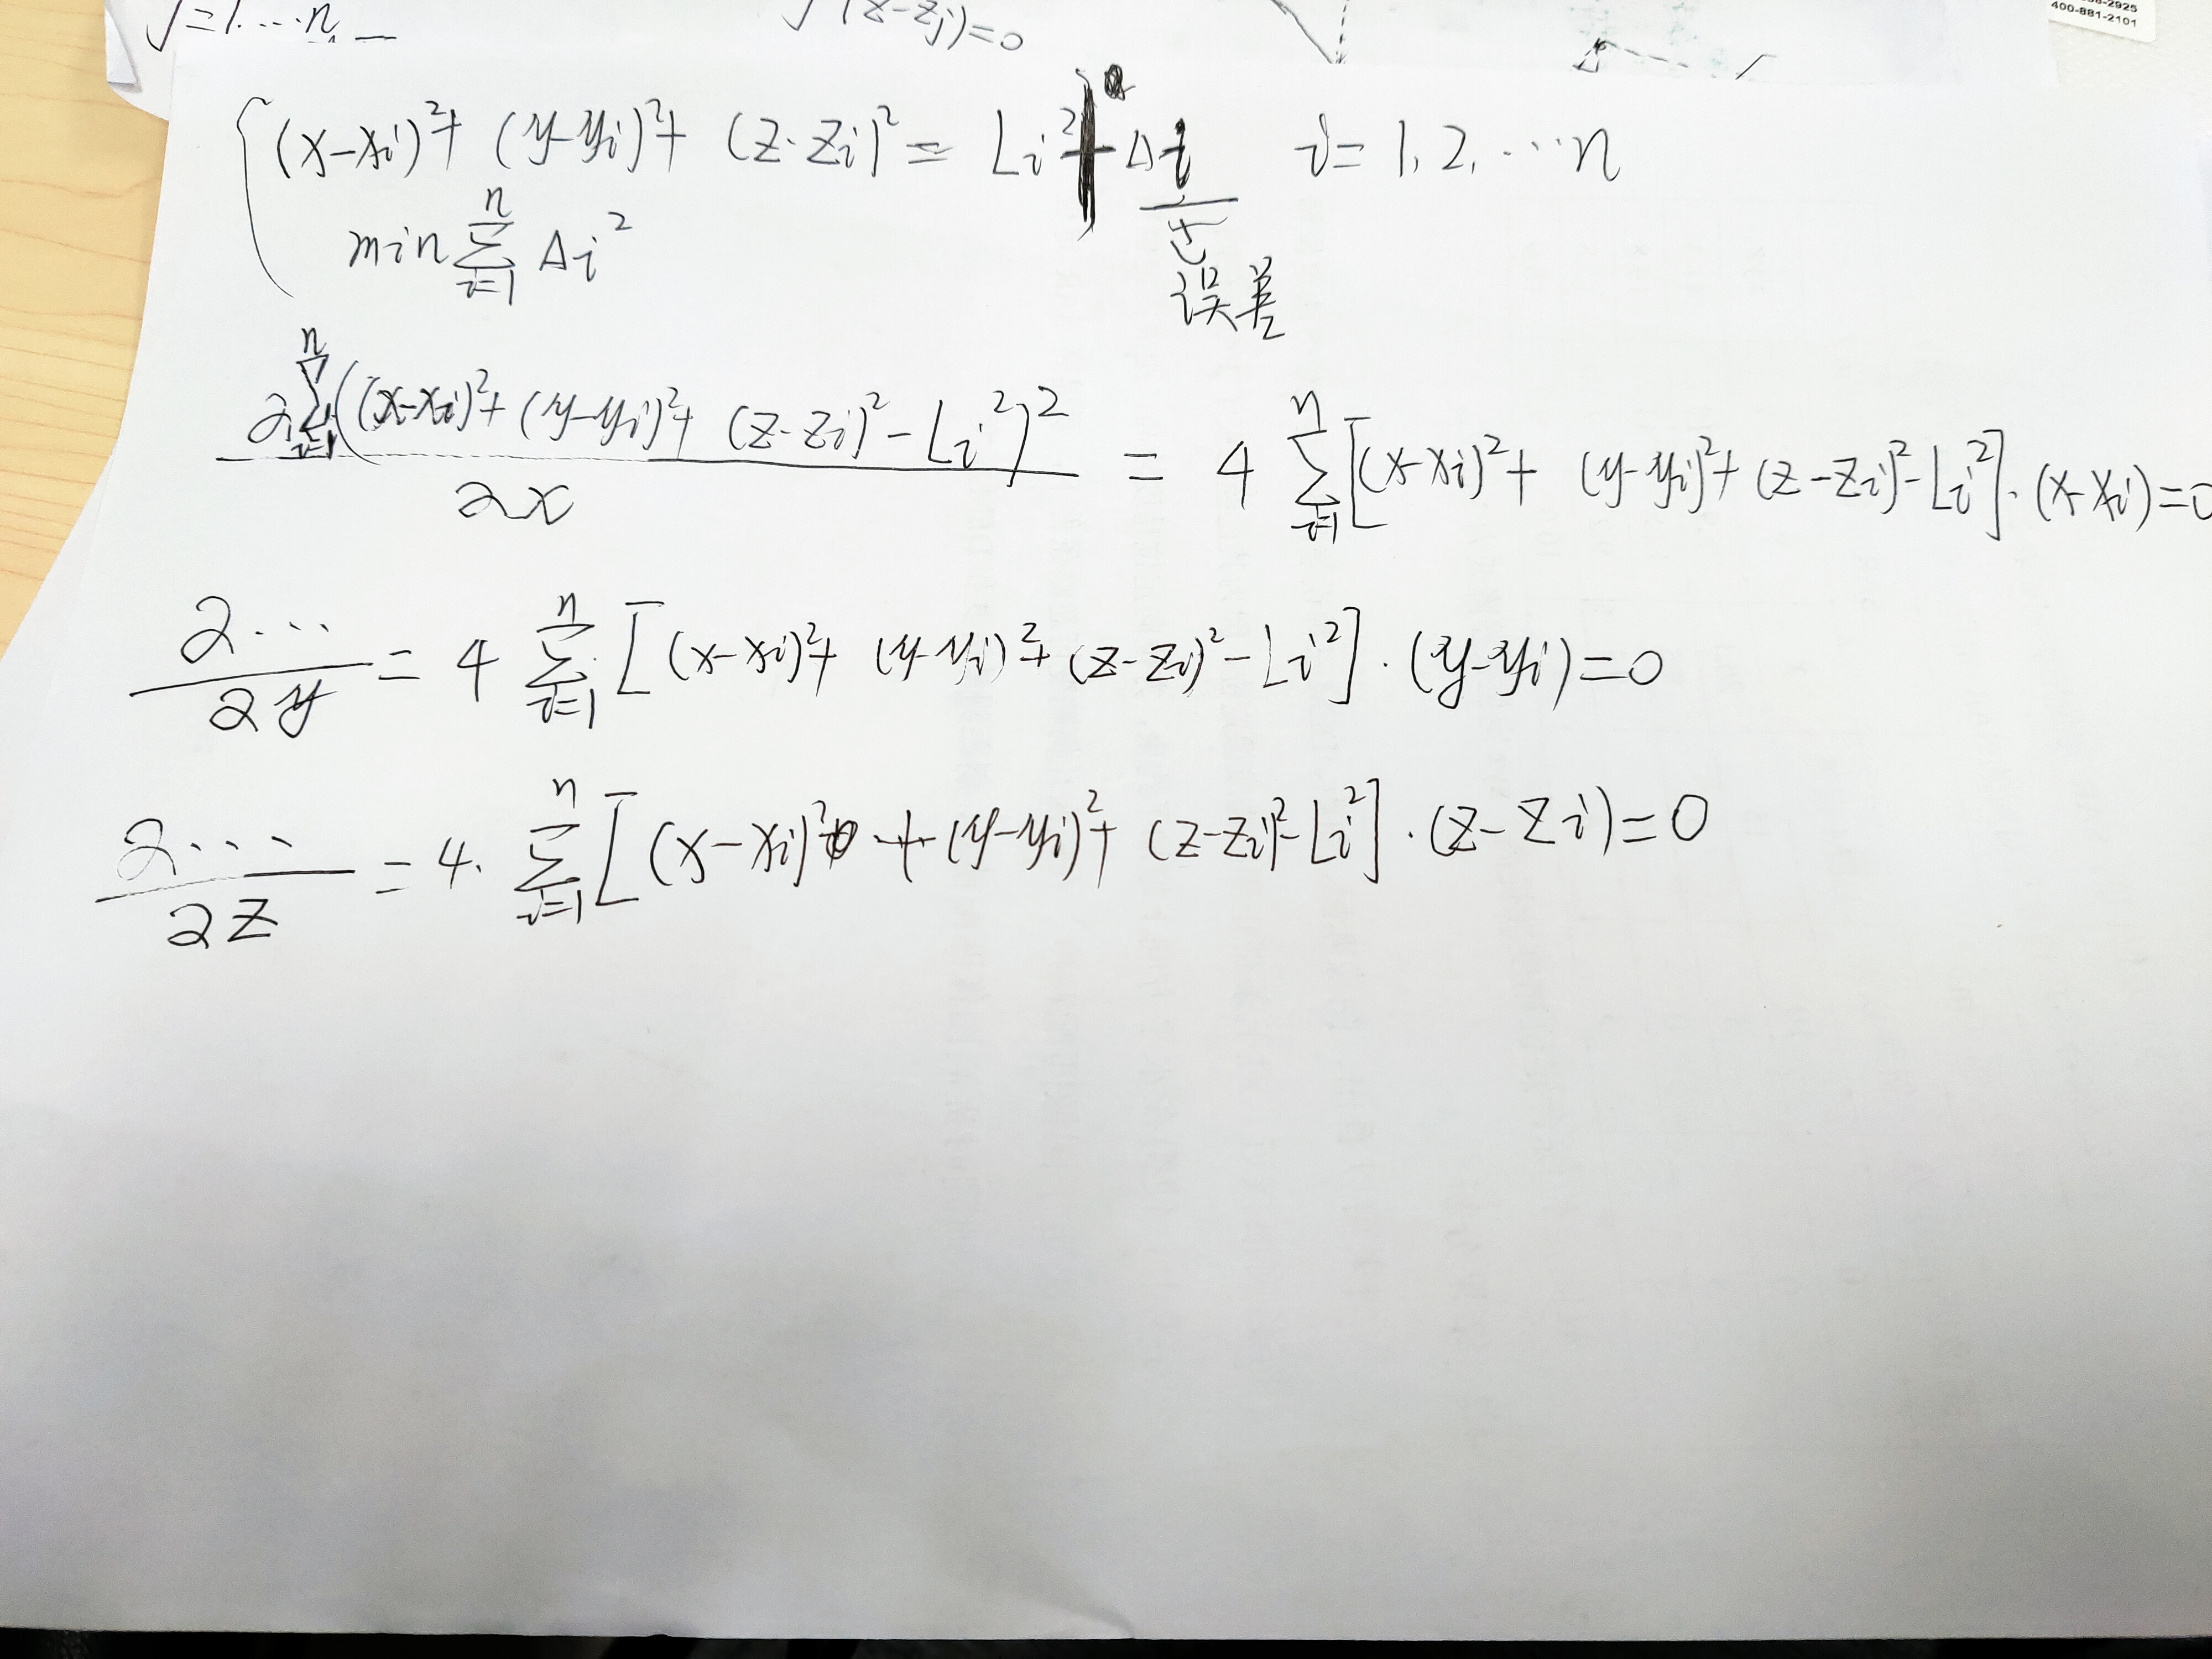 400-881-2101
j=1.…n
(z-zj)=0
(x-xi)²+ (y-yi)²+ (z-zi)² = Li²+Δi i=1,2,…n
min∑ⁿᵢ₌₁ Δi²
误差
∂∑ⁿᵢ₌₁((x-xi)²+(y-yi)²+(z-zi)²-Li²)² / ∂x = 4 ∑ⁿᵢ₌₁[(x-xi)²+(y-yi)²+(z-zi)²-Li²]·(x-xi)=0
∂… / ∂y = 4 ∑ⁿᵢ₌₁[(x-xi)²+(y-yi)²+(z-zi)²-Li²]·(y-yi)=0
∂… / ∂z = 4·∑ⁿᵢ₌₁[(x-xi)²+(y-yi)²+(z-zi)²-Li²]·(z-zi)=0